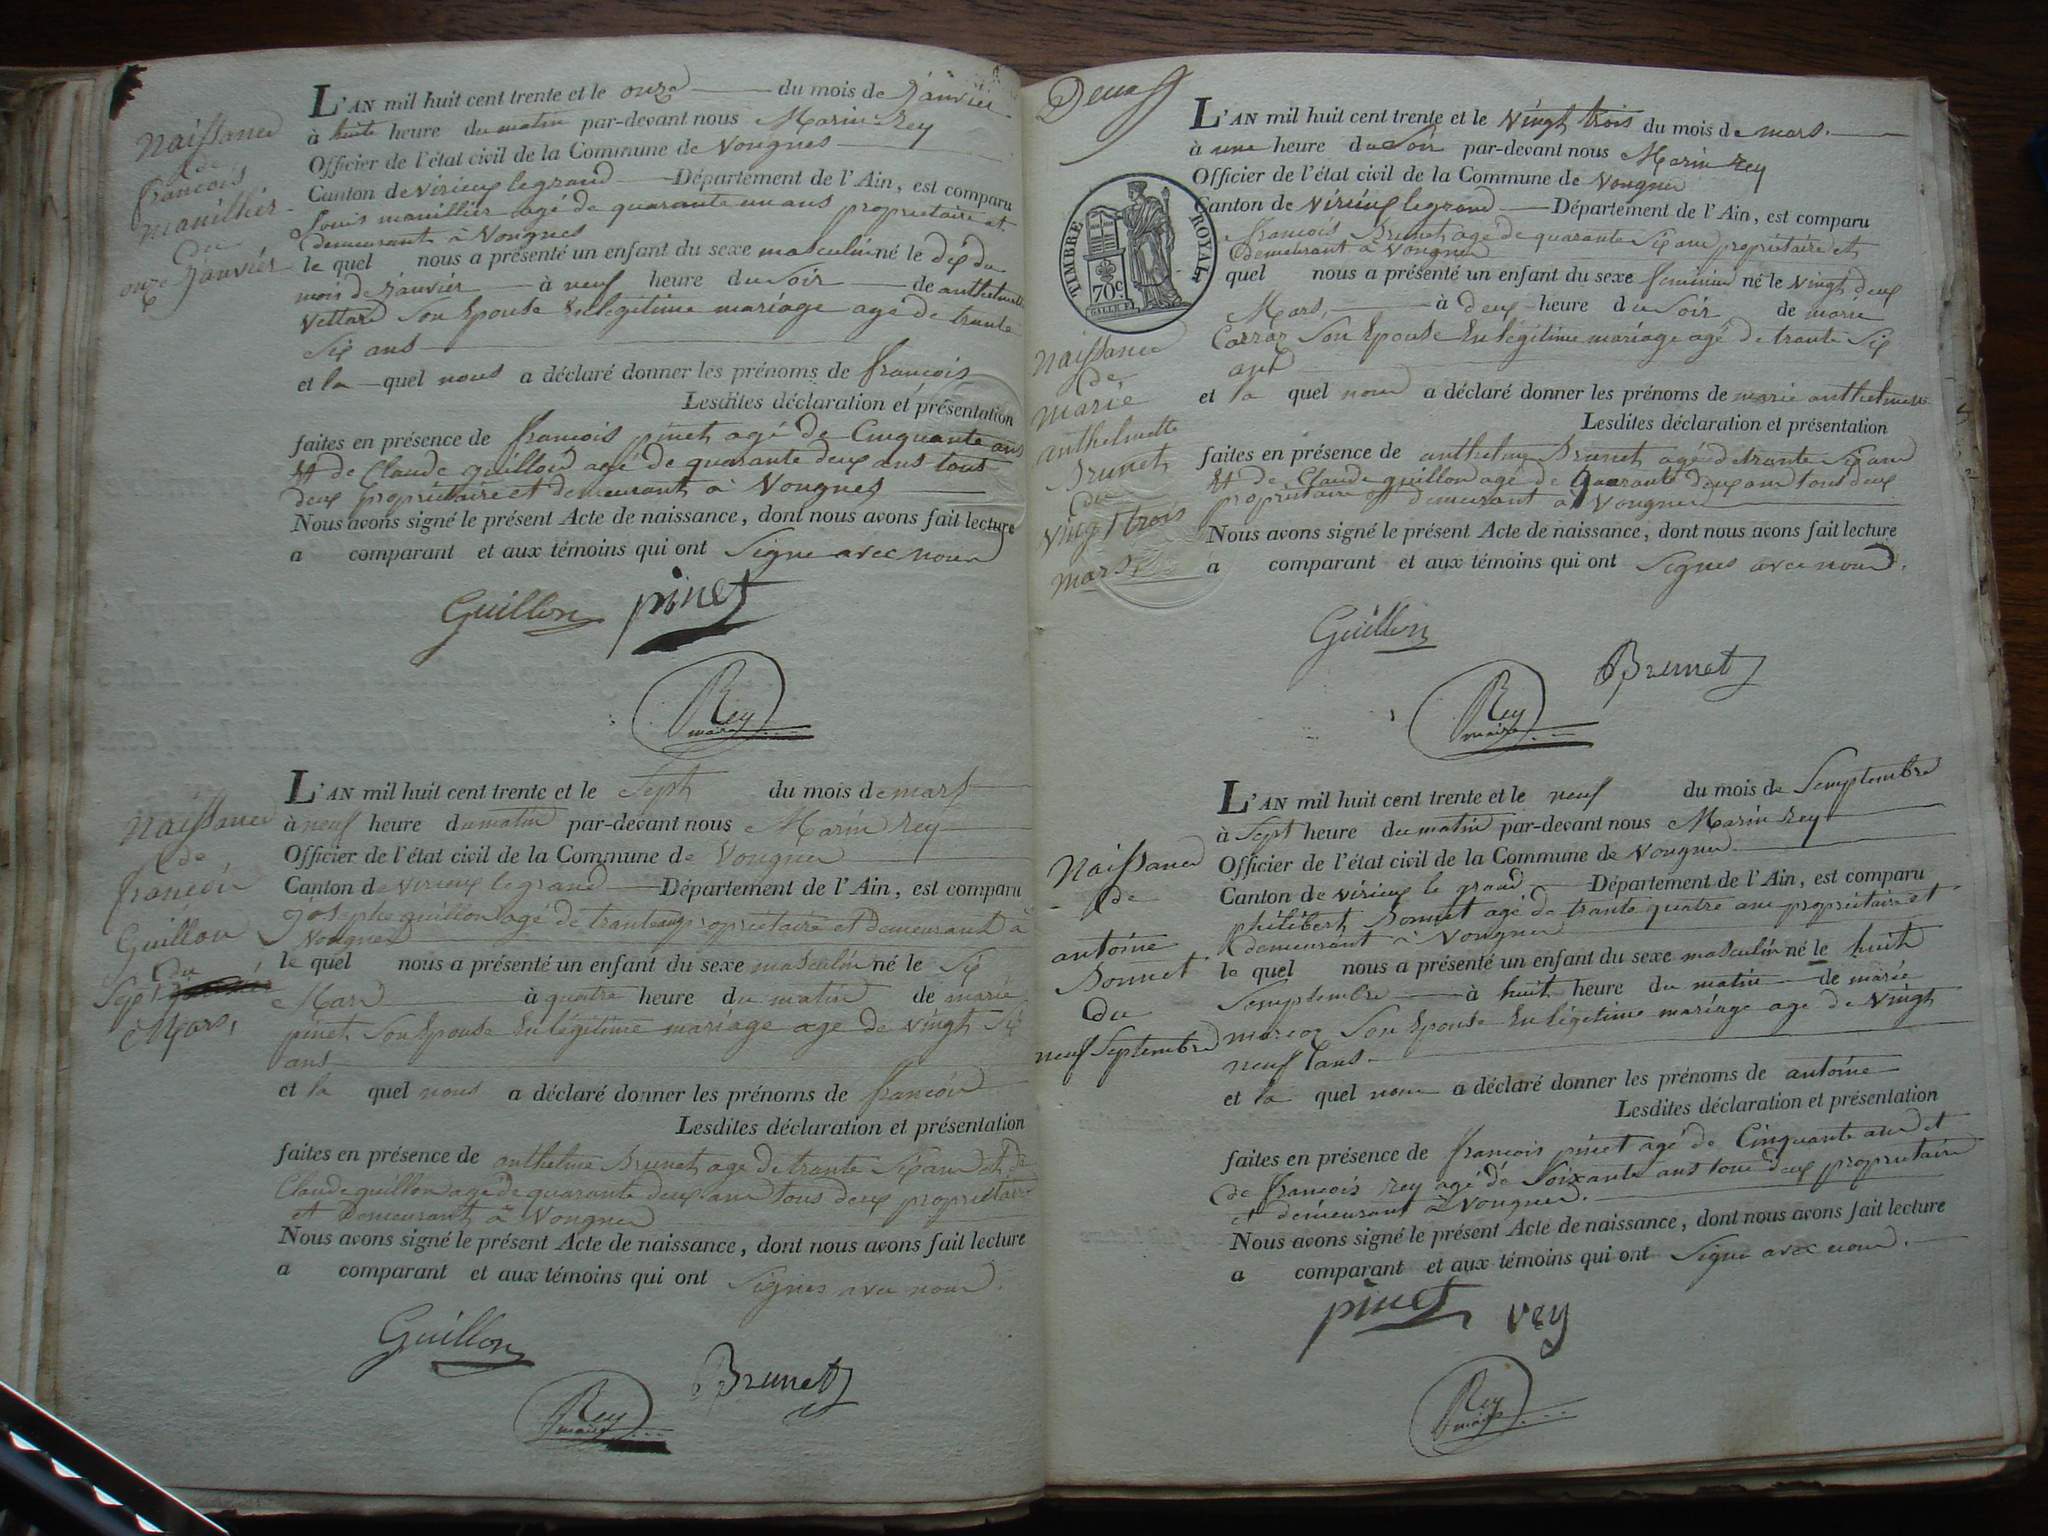 Naissance
de
francois
manillier
du
onze Janvier
L'AN mil huit cent trente et le onze du mois de Janvier
à huite heure du matin par-devant nous Marin rey
Officier de l'état civil de la Commune de Vongnes
Canton de virieux legrand Département de l'Ain, est comparu
Louis manillier agé de quarante un ans proprietaire et
demeurant à Vongnes
le quel nous a présenté un enfant du sexe masculin né le dix du
mois de Janvier à neuf heure du Soir de anthelmette
Vettard Son Epouse En légitime mariage agé de trante
Six ans
et la quel nous a déclaré donner les prénoms de francois
Lesdites déclaration et présentation
faites en présence de francois pinet agé de Cinquante ans
Et de Claude guillon agé de quarante deux ans tous
deux propriétaire et demeurant à Vongnes
Nous avons signé le présent Acte de naissance, dont nous avons fait lecture
a comparant et aux témoins qui ont Signe avec nous
Guillon pinet
Rey
maire
Naissance
de
francois
Guillon
du
Sept
Mars
L'AN mil huit cent trente et le Sept du mois de mars
à neuf heure du matin par-devant nous Marin rey
Officier de l'état civil de la Commune de Vongnes
Canton de virieux legrand Département de l'Ain, est comparu
Josephe guillon agé de trante ans propriétaire et demeurant à
Vongnes
le quel nous a présenté un enfant du sexe masculin né le Six
Mars à quatre heure du matin de marie
pinet Son Epouse En légitime mariage age de vingt Six
ans
et la quel nous a déclaré donner les prénoms de francois
Lesdites déclaration et présentation
faites en présence de anthelme Brunet age de trante Six ans et de
Claude guillon agé de quarante deux ans tous deux propriétaire
et demeurant à Vongnes
Nous avons signé le présent Acte de naissance, dont nous avons fait lecture
a comparant et aux témoins qui ont Signés avec nous.
Guillon
Brunet
Rey
maire
Deux
TIMBRE ROYAL
70c.
Naissance
de
marie
anthelmette
Brunet
du
vingt trois
mars
L'AN mil huit cent trente et le vingt trois du mois de mars.
à une heure du Soir par-devant nous Marin rey
Officier de l'état civil de la Commune de Vongnes
Canton de virieux legrand Département de l'Ain, est comparu
francois Brunet agé de quarante Six ans propriétaire et
demeurant à Vongnes
quel nous a présenté un enfant du sexe feminin né le vingt deux
Mars, à deux heure du Soir de marie
Carraz Son Epouse En légitime mariage agé de trante Six
ans
et la quel nous a déclaré donner les prénoms de marie anthelmette
Lesdites déclaration et présentation
faites en présence de anthelme Brunet agé de trante Six ans
Et de Claude guillon agé de quarante deux ans tous deux
propriétaire et demeurant à Vongnes
Nous avons signé le présent Acte de naissance, dont nous avons fait lecture
a comparant et aux témoins qui ont Signes avec nous.
Guillon
Brunet
Rey
maire
Naissance
de
antoine
Bonnet
du
neuf Septembre
L'AN mil huit cent trente et le neuf du mois de Semptembre
à Sept heure du matin par-devant nous Marin rey
Officier de l'état civil de la Commune de Vongnes
Canton de virieux le grand Département de l'Ain, est comparu
philibert Bonnet agé de trante quatre ans propriétaire et
demeurant à Vongnes
le quel nous a présenté un enfant du sexe masculin né le huit
Semptembre à huit heure du matin de marie
Son Epouse En légitime mariage age de Vingt
neuf ans
et la quel nous a déclaré donner les prénoms de antoine
Lesdites déclaration et présentation
faites en présence de francois pinet agé de Cinquante ans et
de francois rey agé de Soixante ans tous deux propriétaire
et demeurant à Vongnes.
Nous avons signé le présent Acte de naissance, dont nous avons fait lecture
a comparant et aux témoins qui ont Signe avec nous.
pinet rey
Rey
maire